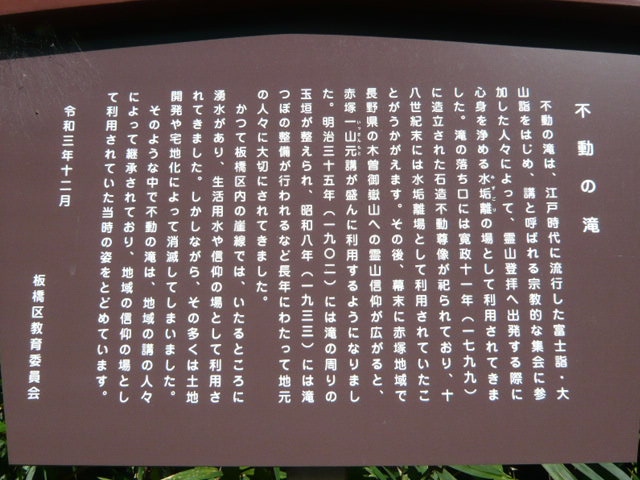 不動の滝
不動の滝は、江戸時代に流行した富士詣・大
山詣をはじめ、講と呼ばれる宗教的な集会に参
加した人々によって、霊山登拝へ出発する際に
心身を浄める水垢離の場として利用されてきま
した。滝の落ち口には寛政十一年（一七九九）
に造立された石造不動尊像が祀られており、十
八世紀末には水垢離場として利用されていたこ
とがうかがえます。その後、幕末に赤塚地域で
長野県の木曽御嶽山への霊山信仰が広がると、
赤塚一山元講が盛んに利用するようになりまし
た。明治三十五年（一九〇二）には滝の周りの
玉垣が整えられ、昭和八年（一九三三）には滝
つぼの整備が行われるなど長年にわたって地元
の人々に大切にされてきました。
かつて板橋区内の崖線では、いたるところに
湧水があり、生活用水や信仰の場として利用さ
れてきました。しかしながら、その多くは土地
開発や宅地化によって消滅してしまいました。
そのような中で不動の滝は、地域の講の人々
によって継承されており、地域の信仰の場とし
て利用されていた当時の姿をとどめています。
令和三年十二月
板橋区教育委員会